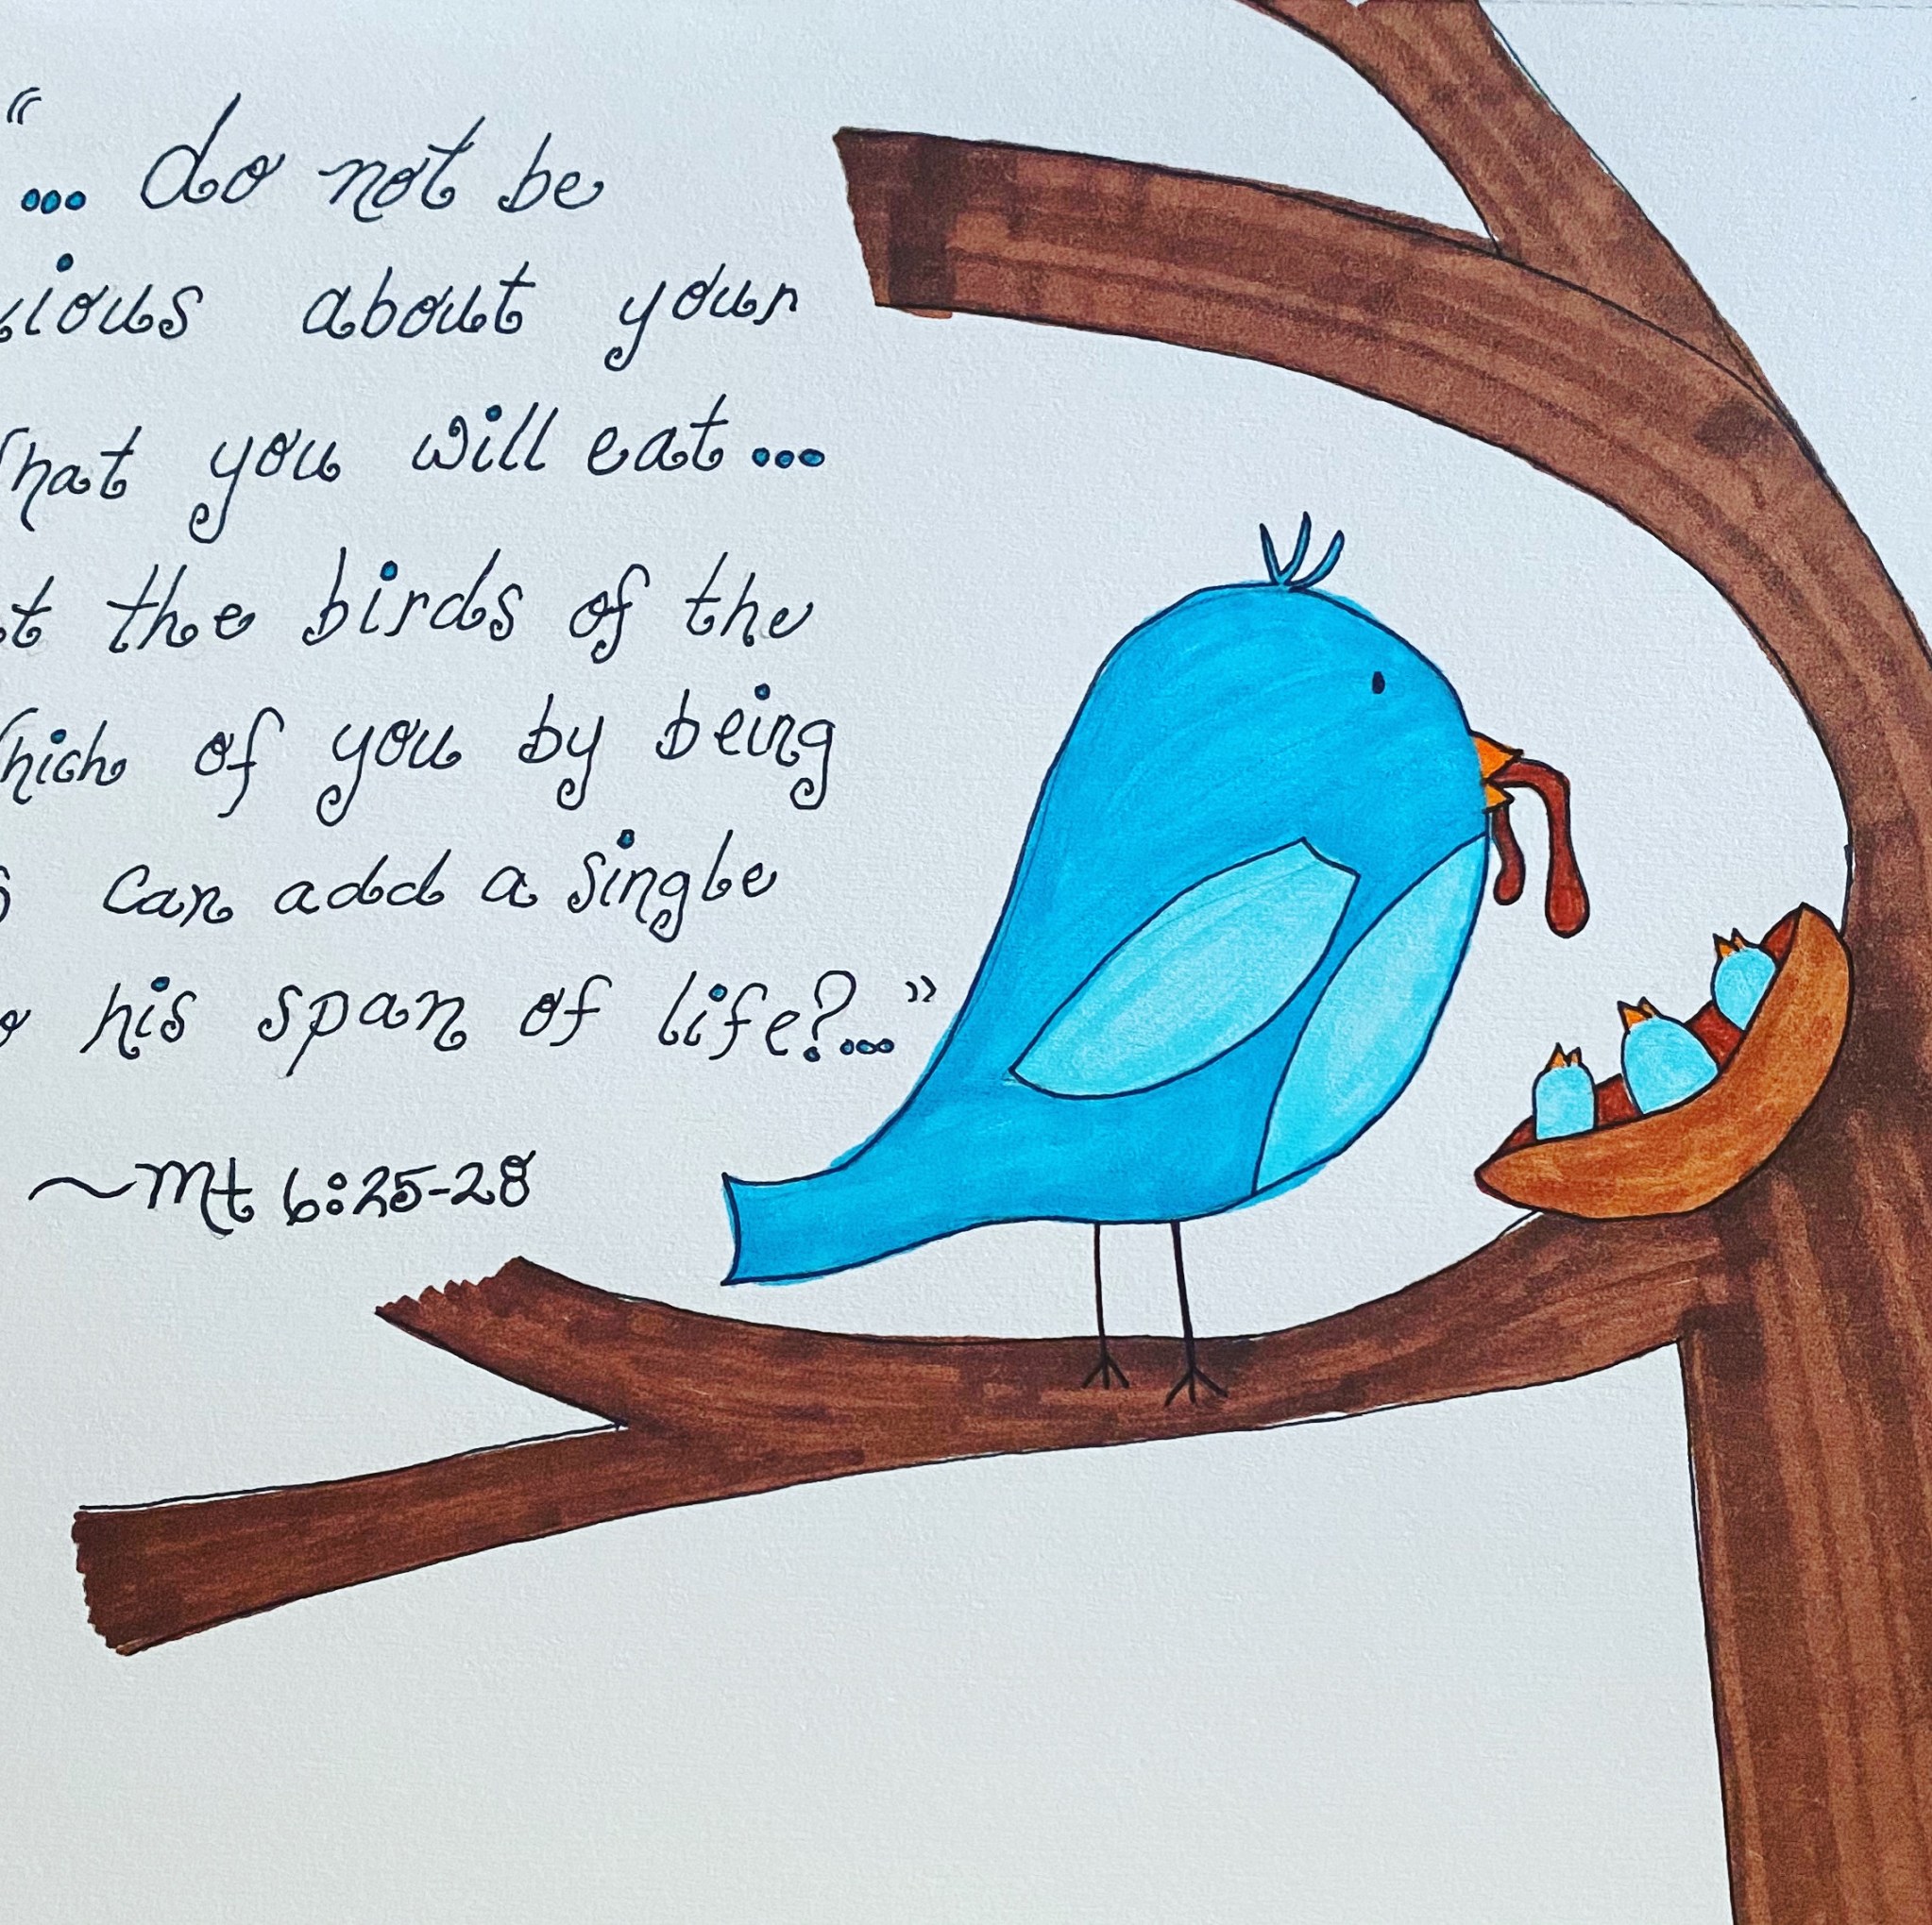 "... do not be
ious about your
hat you will eat...
t the birds of the
hich of you by being
can add a single
o his span of life?..."
~Mt 6:25-28